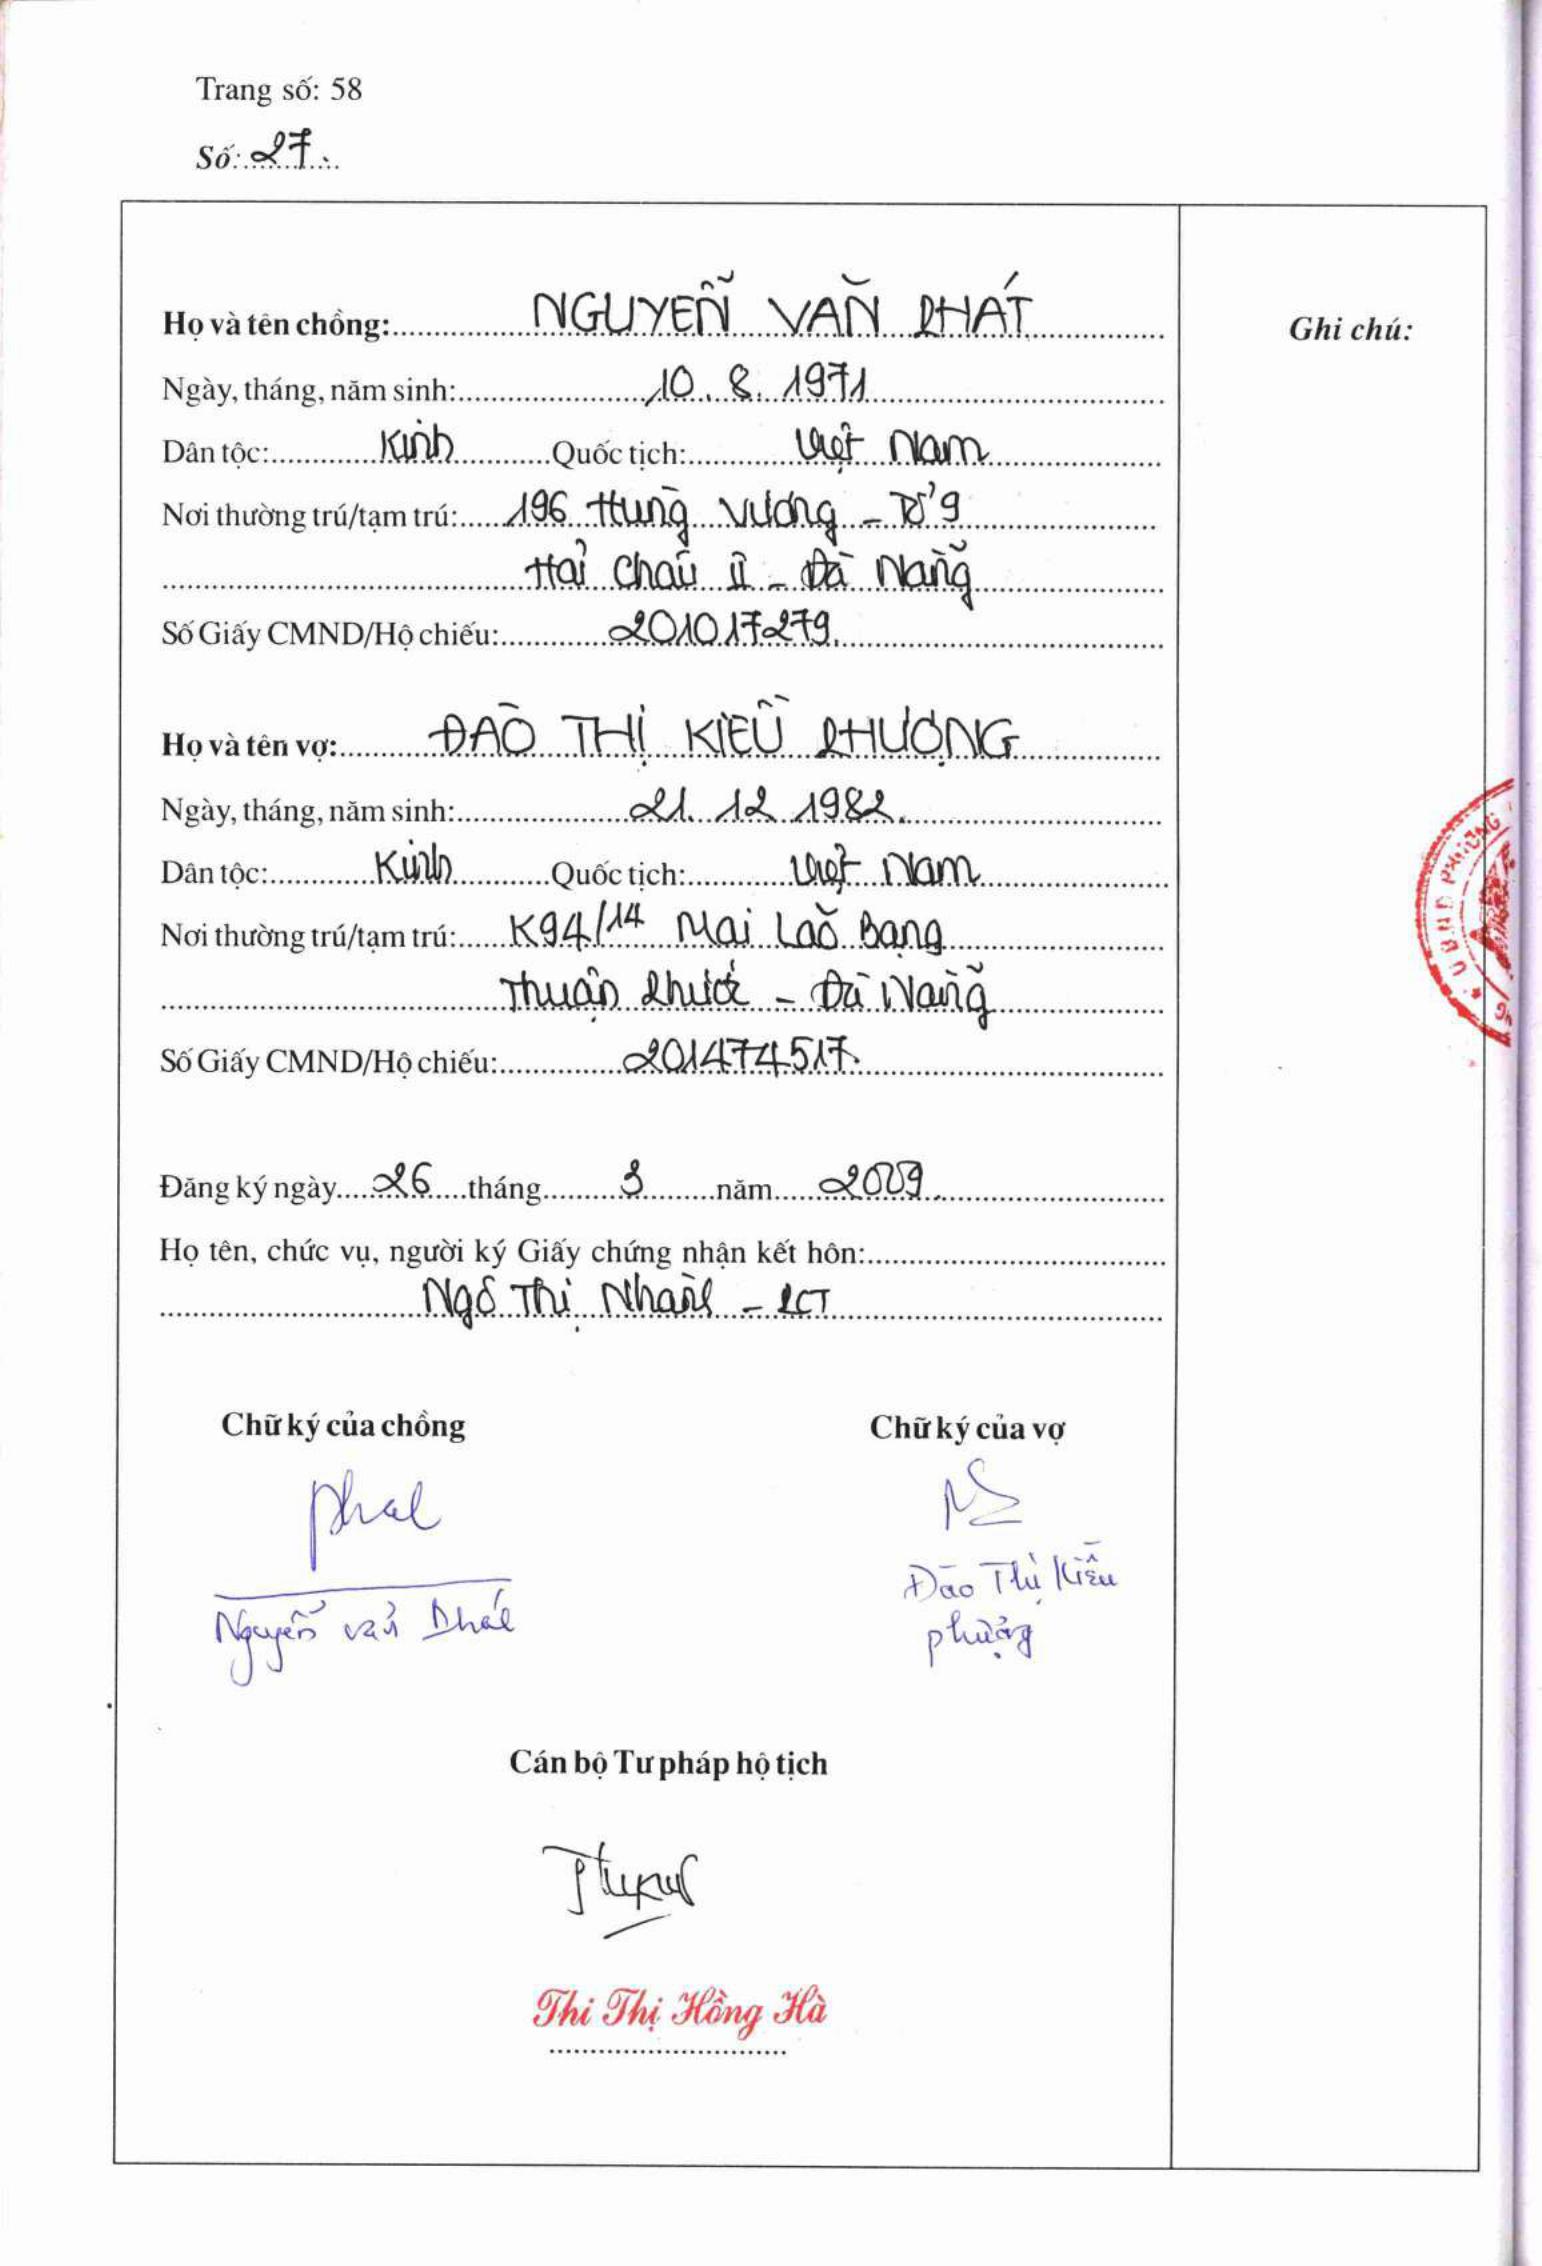 Trang số: 58
Số: 27
Họ và tên chồng: NGUYỄN VĂN PHÁT
Ghi chú:
Ngày, tháng, năm sinh: 10. 8. 1971
Dân tộc: Kinh Quốc tịch: Việt Nam
Nơi thường trú/tạm trú: 196 Hùng Vương - Tổ 9
Hải Châu II - Đà Nẵng
Số Giấy CMND/Hộ chiếu: 201017279
Họ và tên vợ: ĐÀO THỊ KIỀU PHƯỢNG
Ngày, tháng, năm sinh: 21. 12 1982
Dân tộc: Kinh Quốc tịch: Việt Nam
Nơi thường trú/tạm trú: K94/14 Mai Lão Bạng
Thuận Phước - Đà Nẵng
Số Giấy CMND/Hộ chiếu: 201474517
UBND PHƯỜNG
Đăng ký ngày 26 tháng 3 năm 2009
Họ tên, chức vụ, người ký Giấy chứng nhận kết hôn:
Ngô Thị Nhàn - PCT
Chữ ký của chồng Chữ ký của vợ
Phát
Nguyễn Văn Phát
Đào Thị Kiều
Phượng
Cán bộ Tư pháp hộ tịch
Thi Thị Hồng Hà